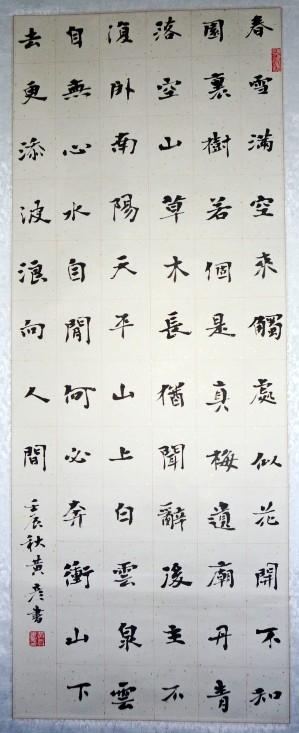 春雪滿空來觸處似花開不知
園裏樹若個是真梅遺廟丹青
落空山草木長猶聞辭後主不
復臥南陽天平山上白雲泉雲
自無心水自閒何必奔衝山下
去更添波浪向人間
壬辰秋黃彥書